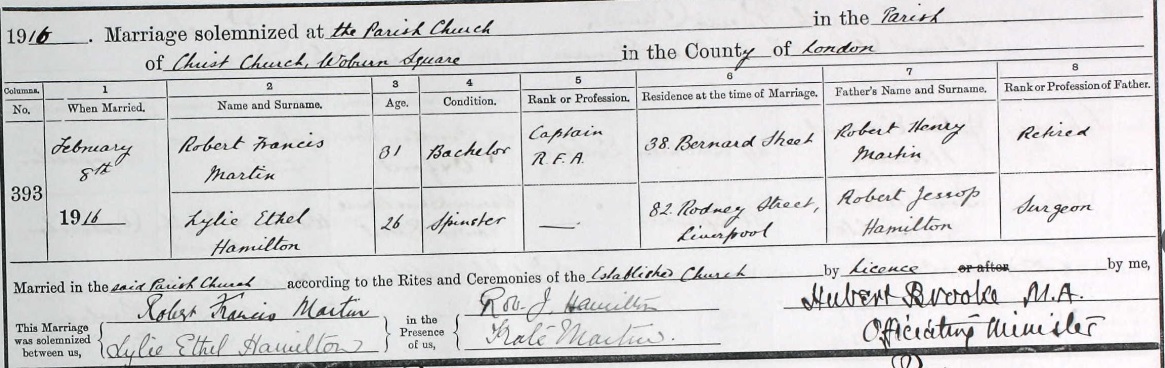 1916. Marriage solemnized at the Parish Church in the Parish
of Christ Church, Woburn Square in the County of London
Columns. 1 2 3 4 5 6 7 8
No. When Married. Name and Surname. Age. Condition. Rank or Profession. Residence at the time of Marriage. Father's Name and Surname. Rank or Profession of Father.
393
February 8th 1916
Robert Francis Martin
31
Bachelor
Captain R.F.A.
38. Bernard Street
Robert Henry Martin
Retired
Lylie Ethel Hamilton
26
Spinster
—
82. Rodney Street, Liverpool
Robert Jessop Hamilton
Surgeon
Married in the said Parish Church according to the Rites and Ceremonies of the Established Church by Licence or after by me,
This Marriage was solemnized between us,
Robert Francis Martin
Lylie Ethel Hamilton
in the Presence of us,
Rob. J. Hamilton
Kate Martin.
Hubert Brooke M.A.
Officiating Minister